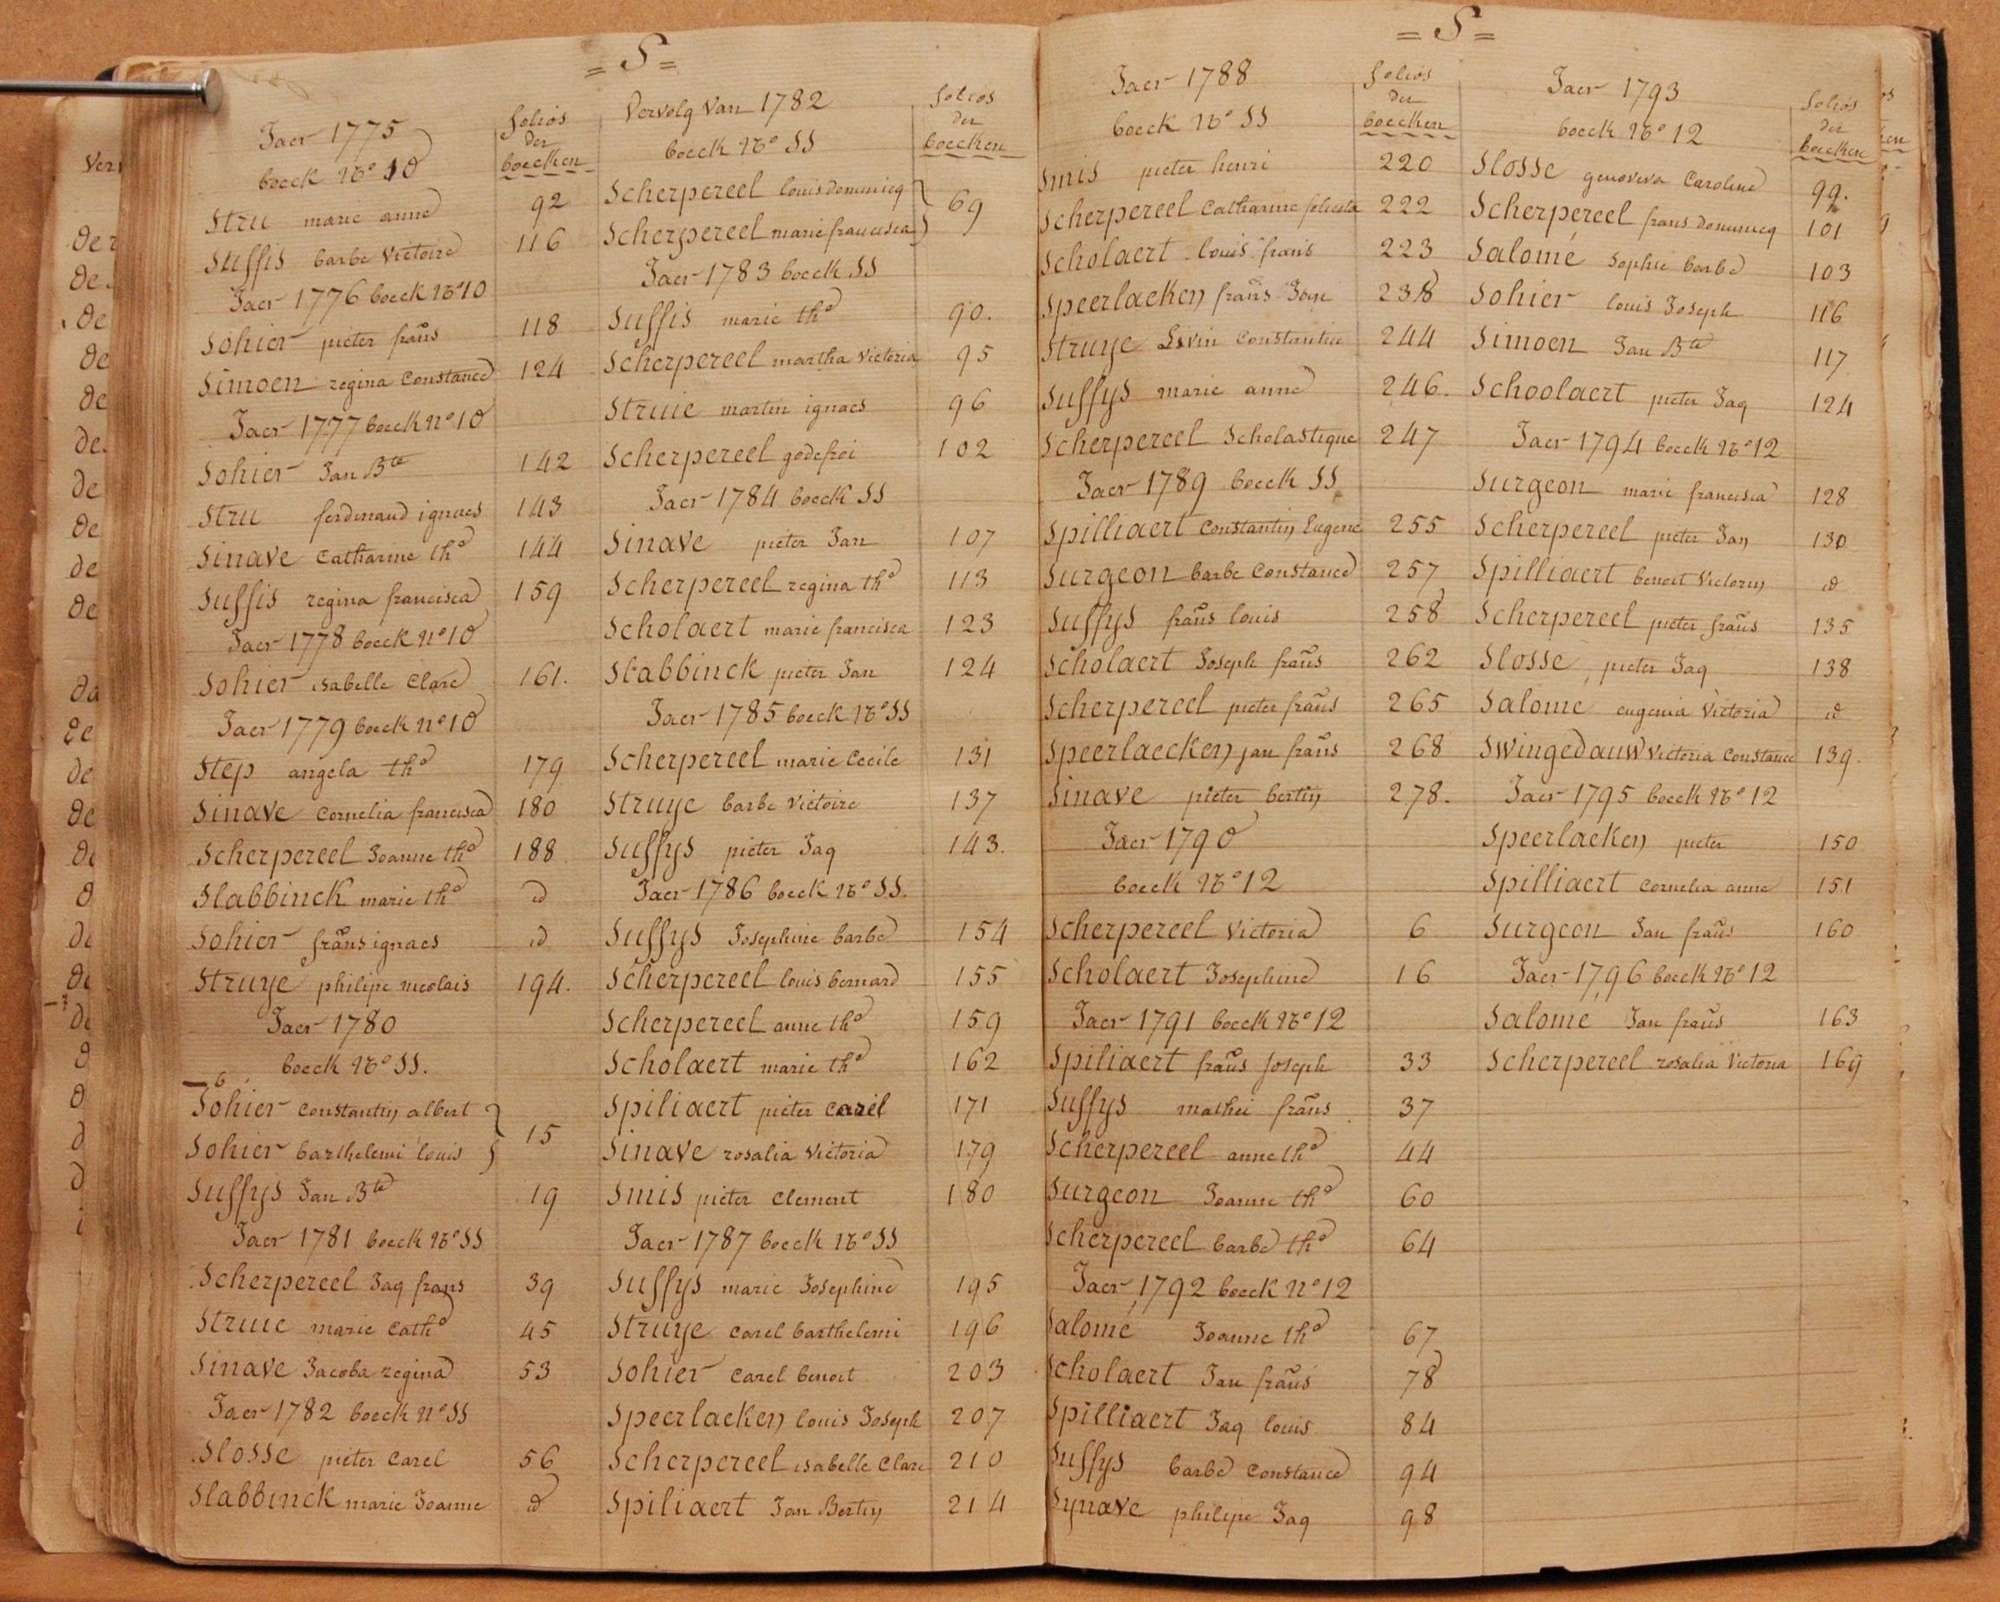 = S =
Jaer 1775
boeck No 10
folios
der
boecken
Stru marie anne 92
Suffis barbe Victoire 116
Jaer 1776 boeck No 10
Sohier pieter frans 118
Simoen regina Constance 124
Jaer 1777 boeck No 10
Sohier Jan Bte 142
Stru ferdinand ignaes 143
Sinave Catharine the 144
Suffis regina francisca 159
Jaer 1778 boeck No 10
Sohier isabelle Clare 161.
Jaer 1779 boeck No 10
Step angela the 179
Sinave Cornelia francisca 180
Scherpereel Joanne the 188
Slabbinck marie the id
Sohier frans ignaes id
Struye philipe nicolais 194.
Jaer 1780
boeck No SS.
Sohier Constantin albert }
Sohier barthelemi louis } 15
Suffys Jan Bte 19
Jaer 1781 boeck No SS
Scherpereel Jaq frans 39
Struie marie Cathe 45
Sinave Jacoba regina 53
Jaer 1782 boeck No SS
Slosse pieter Carel 56
Slabbinck marie Joanne id
Vervolg Van 1782
boeck No SS
folios
der
boecken
Scherpereel louis dominicq }
Scherpereel marie francisca } 69
Jaer 1783 boeck SS
Suffis marie the 90.
Scherpereel martha Victoria 95
Struie martin ignaes 96
Scherpereel godefroi 102
Jaer 1784 boeck SS
Sinave pieter Jan 107
Scherpereel regina the 113
Scholaert marie francisca 123
Slabbinck pieter Jan 124
Jaer 1785 boeck No SS
Scherpereel marie Cecile 131
Struye barbe Victoire 137
Suffys pieter Jaq 143.
Jaer 1786 boeck No SS.
Suffys Josephine barbe 154
Scherpereel louis bernard 155
Scherpereel anne the 159
Scholaert marie the 162
Spiliaert pieter Carel 171
Sinave rosalia Victoria 179
Smis pieter Clement 180
Jaer 1787 boeck No SS
Suffys marie Josephine 195
Struye Carel barthelemi 196
Sohier Carel benoit 203
Speerlaeken louis Joseph 207
Scherpereel isabelle Clare 210
Spiliaert Jan Bertin 214
= S =
Jaer 1788
boeck No SS
folios
der
boecken
Smis pieter henri 220
Scherpereel Catharine felicita 222
Scholaert louis frans 223
Speerlaeken frans 238
Struye Livin Constantin 244
Suffys marie anne 246.
Scherpereel Scholastique 247
Jaer 1789 boeck SS
Spilliaert Constantin Eugene 255
Surgeon barbe Constance 257
Suffys frans louis 258
Scholaert Joseph frans 262
Scherpereel pieter frans 265
Speerlaecken jan frans 268
Sinave pieter bertin 278.
Jaer 1790
boeck No 12
Scherpereel Victoria 6
Scholaert Josephine 16
Jaer 1791 boeck No 12
Spiliaert frans Joseph 33
Suffys mathei frans 37
Scherpereel anne the 44
Surgeon Joanne the 60
Scherpereel barbe the 64
Jaer 1792 boeck No 12
Salome Joanne the 67
Scholaert Jan frans 78
Spilliaert Jaq louis 84
Suffys barbe Constance 94
Synave philipe Jaq 98
Jaer 1793
boeck No 12
folios
der
boecken
Slosse genoveva Caroline 99.
Scherpereel frans dominicq 101
Salomé Sophie barbe 103
Sohier louis Joseph 116
Simoen Jan Bte 117
Schoolaert pieter Jaq 124
Jaer 1794 boeck No 12
Surgeon marie francisca 128
Scherpereel pieter Jan 130
Spilliaert benoit Victorin id
Scherpereel pieter frans 135
Slosse pieter Jaq 138
Salome eugenia Victoria id
Swingedauw Victoria Constance 139.
Jaer 1795 boeck No 12
Speerlaeken pieter 150
Spilliaert Cornelia anne 151
Surgeon Jan frans 160
Jaer 1796 boeck No 12
Salome Jan frans 163
Scherpereel rosalia Victoria 169